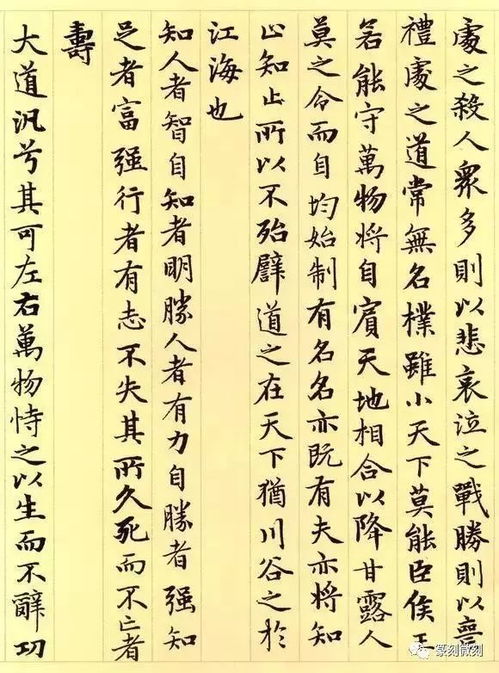 處之殺人衆多則以悲哀泣之戰勝則以喪
禮處之道常無名樸雖小天下莫能臣侯王
若能守萬物將自賓天地相合以降甘露人
莫之令而自均始制有名名亦既有夫亦將知
止知止所以不殆譬道之在天下猶川谷之於
江海也
知人者智自知者明勝人者有力自勝者強知
足者富强行者有志不失其所久死而不亡者
壽
大道汎兮其可左右萬物恃之以生而不辭功
篆刻微刻